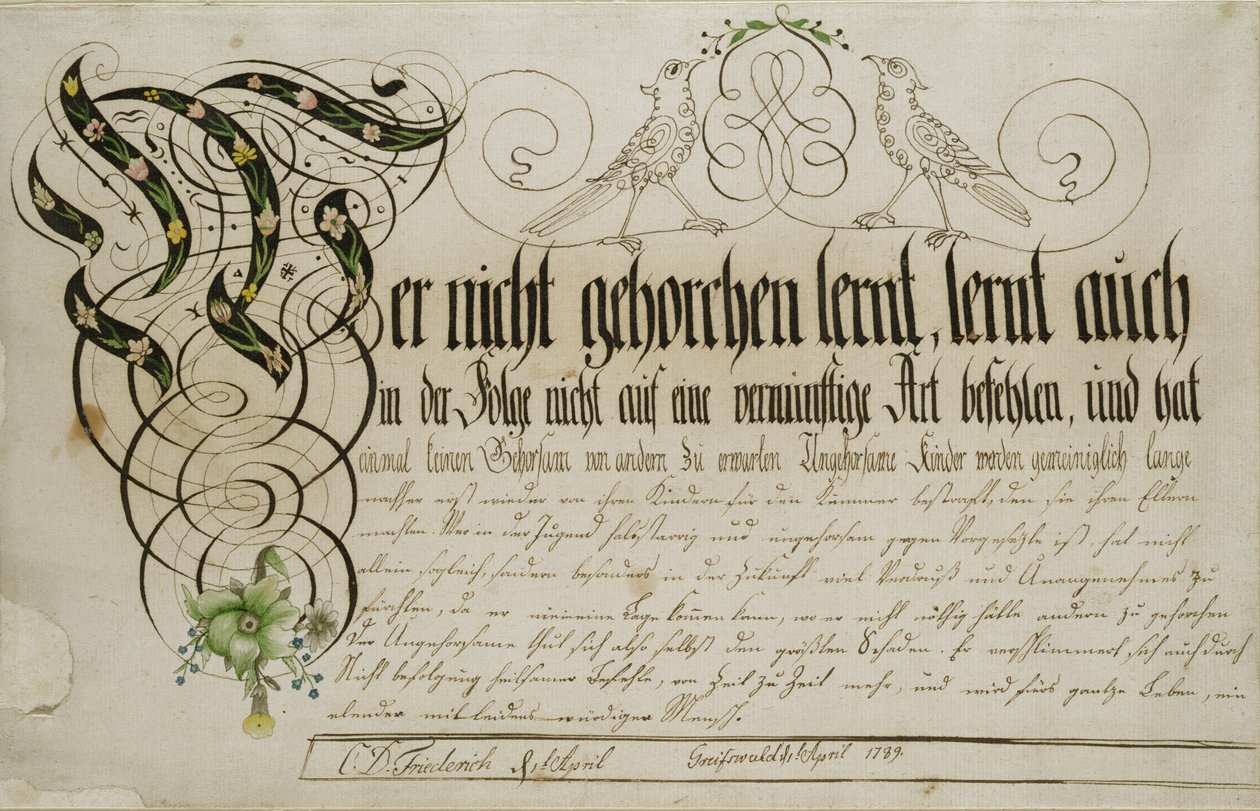 Wer nicht gehorchen lernt, lernt auch
in der Folge nicht auf eine vernünftige Art befehlen, und hat
anmal keinen Gehorsam von andern zu erwarten Ungehorsame Kinder werden gemeiniglich lange
nachher erst wieder von ihren Kindern für den Kummer bestraft, den sie ihren Eltern
machten. Wer in der Jugend halsstarrig und ungehorsam gegen Vorgesetzte ist, hat nicht
allein sogleich, sondern besonders in der Zukunft viel Verdruß und Unangenehmes zu
fürchten, da er nie in eine Lage kommen kann, wo er nicht nöthig hätte andern zu gehorchen
Der Ungehorsame thut sich also selbst den größten Schaden. Er verschlimmert sich auch durch
Nicht befolgung heilsamer Befehle, von Zeit zu Zeit mehr, und wird fürs gantze Leben, ein
elender mitleidens-würdiger Mensch.
C. D. Friederich d. 1st April Greifswald d. 1st April 1789.